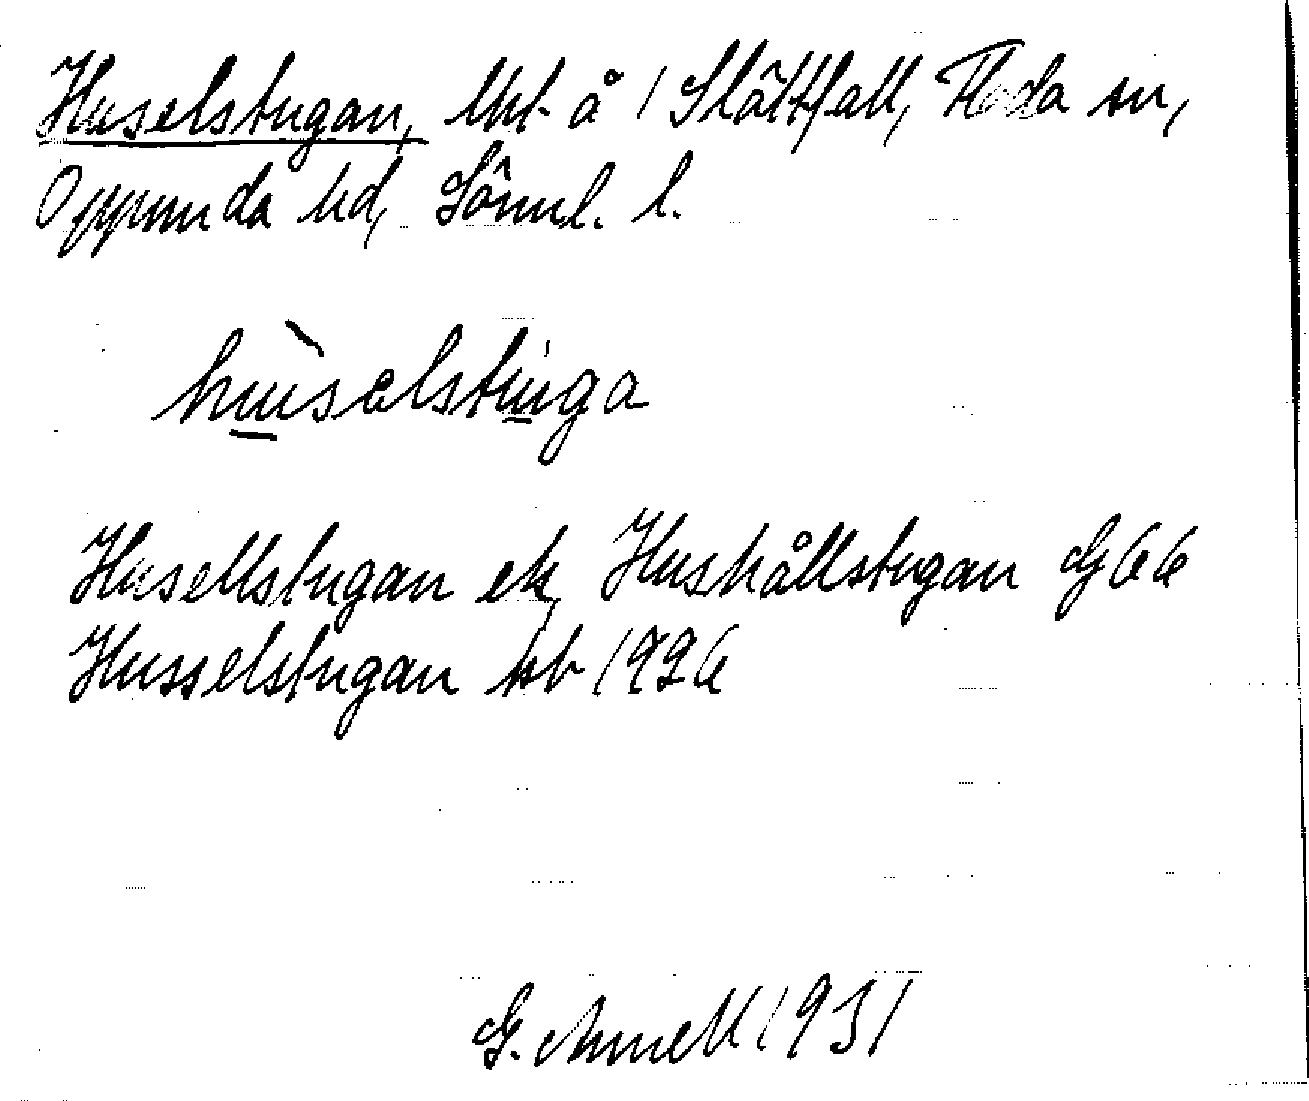 Huselstugan, lht å 1 Slättfall, Floda sn,
Oppunda hd, Sörml. l.
huselstuga
Husellstugan ek, Hushållstugan GJ 66
Husselstugan hb 1926
G. Annell 1931